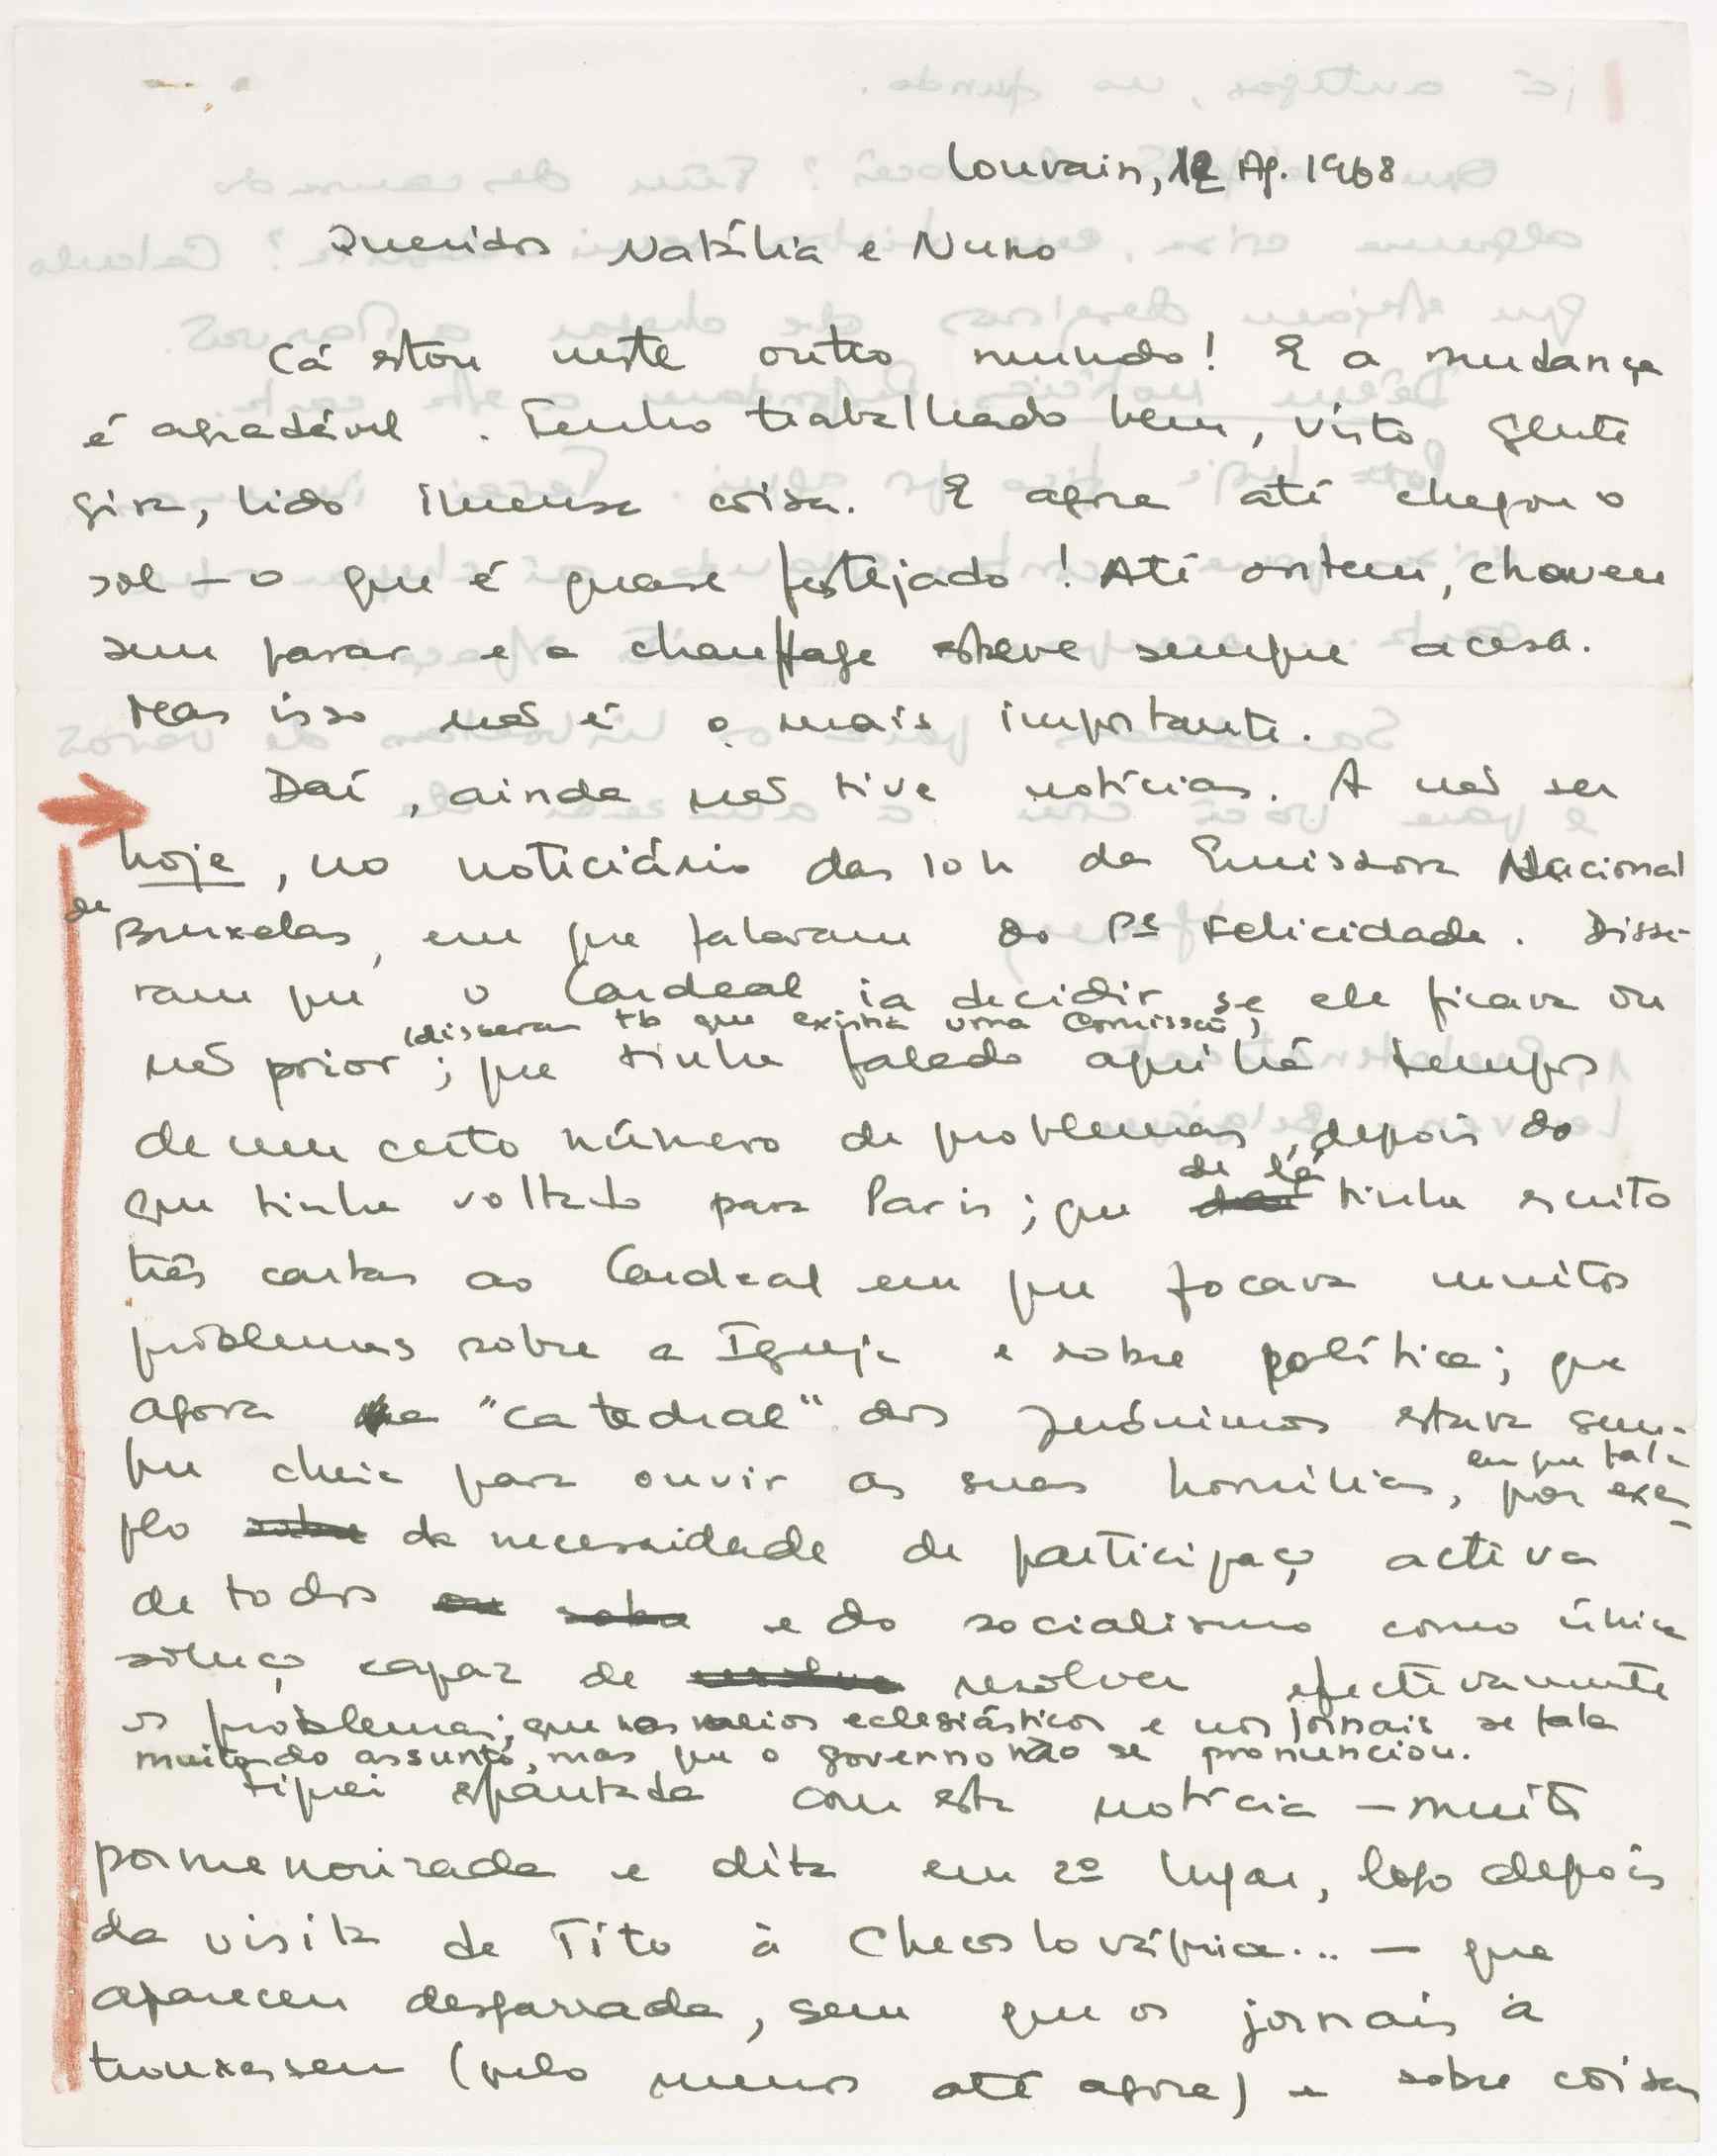 Louvain, 12 Ag. 1968
Queridos Natália e Nuno
Cá estou neste outro mundo! E a mudança
é agradável. Tenho trabalhado bem, visto gente
gira, lido imensa coisa. E agora até chegou o
sol – o que é quase festejado! Até ontem, choveu
sem parar e a chauffage esteve sempre acesa.
Mas isso não é o mais importante.
Daí, ainda não tive notícias. A não ser
hoje, no noticiário das 10 h da Emissora Nacional
de Bruxelas, em que falaram do Pe Felicidade. Disse-
ram que o Cardeal ia decidir se ele ficava ou
(disseram tb que existia uma Comissão)
não prior; que tinha falado aqui há tempos
de um certo número de problemas, depois do
que tinha voltado para Paris; que de lá tinha escrito
três cartas ao Cardeal em que focava muitos
problemas sobre a Igreja e sobre política; que
agora a "catedral" dos Jerónimos estava sem-
pre cheia para ouvir as suas homilias, em que fala
por exem-
plo sobre da necessidade de participaç activa
de todos ou sobre e do socialismo como única
soluç capaz de resolver resolver efectivamente
os problemas; que nos meios eclesiásticos e nos jornais se fala
muito do assunto, mas que o governo não se pronunciou.
Fiquei espantada com esta notícia – muito
pormenorizada e dita em 2º lugar, logo depois
da visita de Tito à Checoslováquia... – que
apareceu desgarrada, sem que os jornais a
trouxessem (pelo menos até agora) e sobre coisas